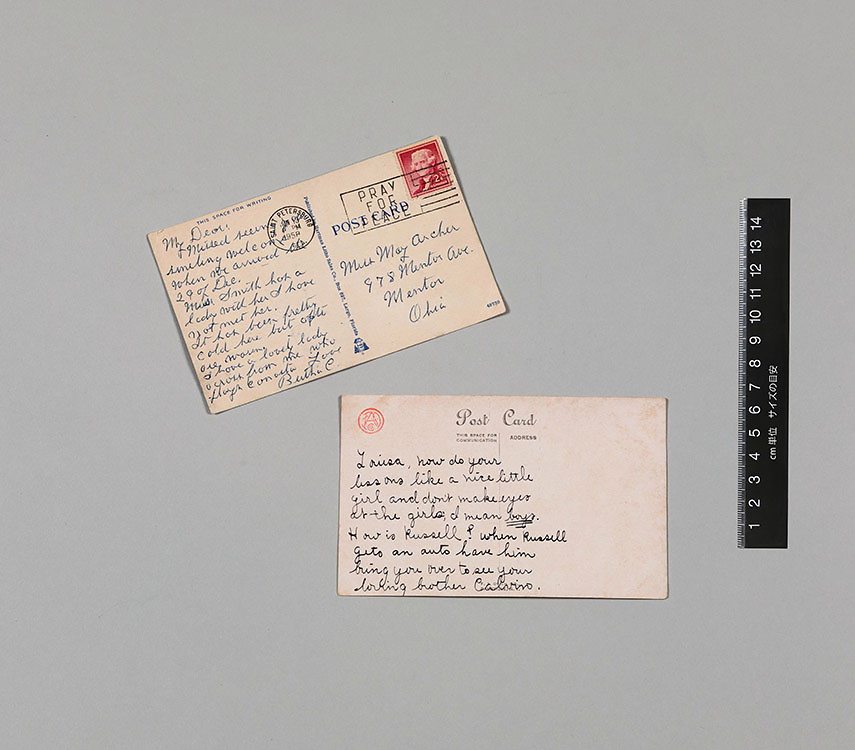 THIS SPACE FOR WRITING
My Dear:
I missed seein
smiling welcom
when we arrived on
29 of Dec.
Miss Smith has a
lady with her I have
not met her.
It has been pretty
cold here but
are warm.
I have a lovely lady
across from me who
plays Canasta Love
Bertha C.
SAINT PETERSBURG
PM
1958
PRAY
FOR
PEACE
POST CARD
Miss May Archer
978 Mentor Ave.
Mentor
Ohio
Post Card
THIS SPACE FOR COMMUNICATION
ADDRESS
Louisa, now do your
lessons like a nice little
girl and don't make eyes
at the girls; I mean boys.
How is Russell? when Russell
gets an auto have him
bring you over to see your
loving brother Calvino.
1 2 3 4 5 6 7 8 9 10 11 12 13 14
cm 単位 サイズの目安